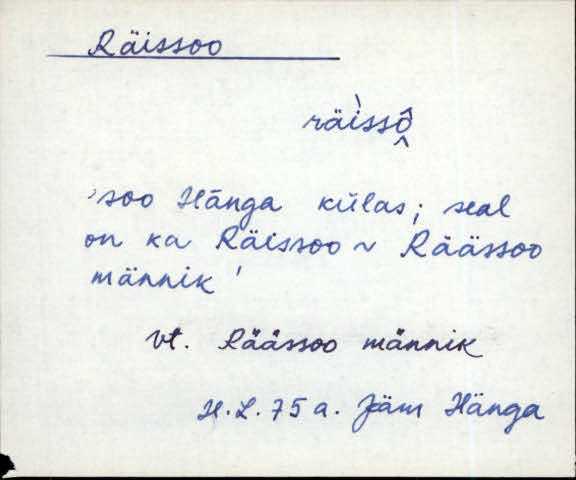 Räissoo
räìssô̭
'soo Hänga külas; seal
on ka Räissoo ~ Räässoo
männik'
vt. Räässoo männik
H.L. 75 a. Jäm Hänga